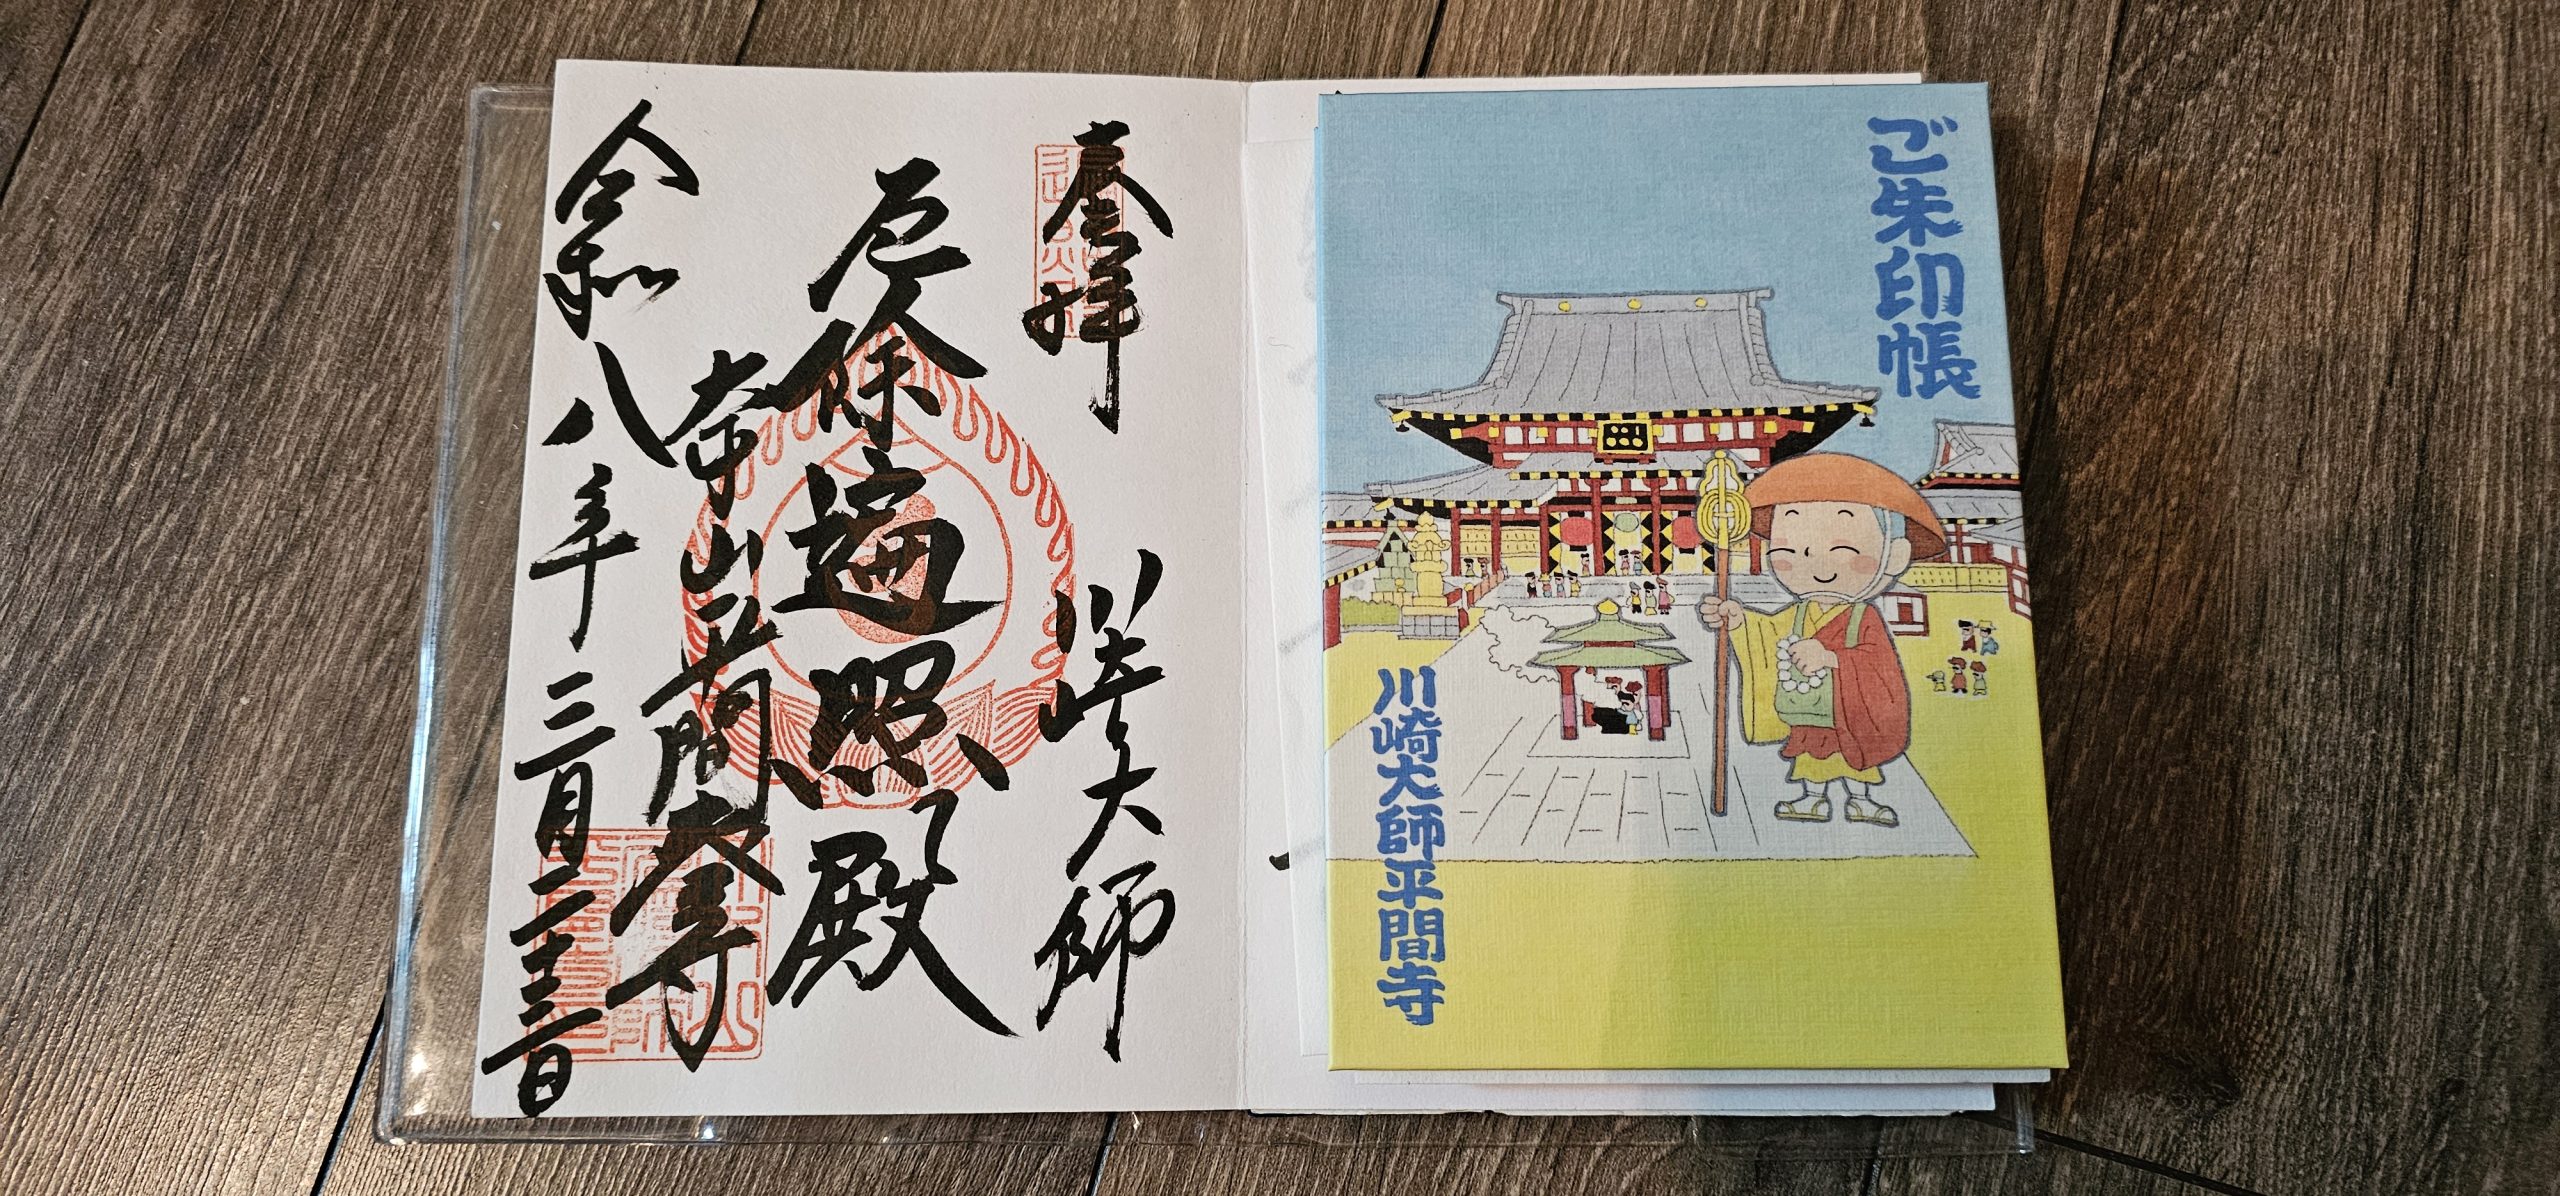 ご朱印帳
川崎大師平間寺
奉拝
川崎大師
厄除遍照殿
大本山平間寺
令和八年三月二十三日